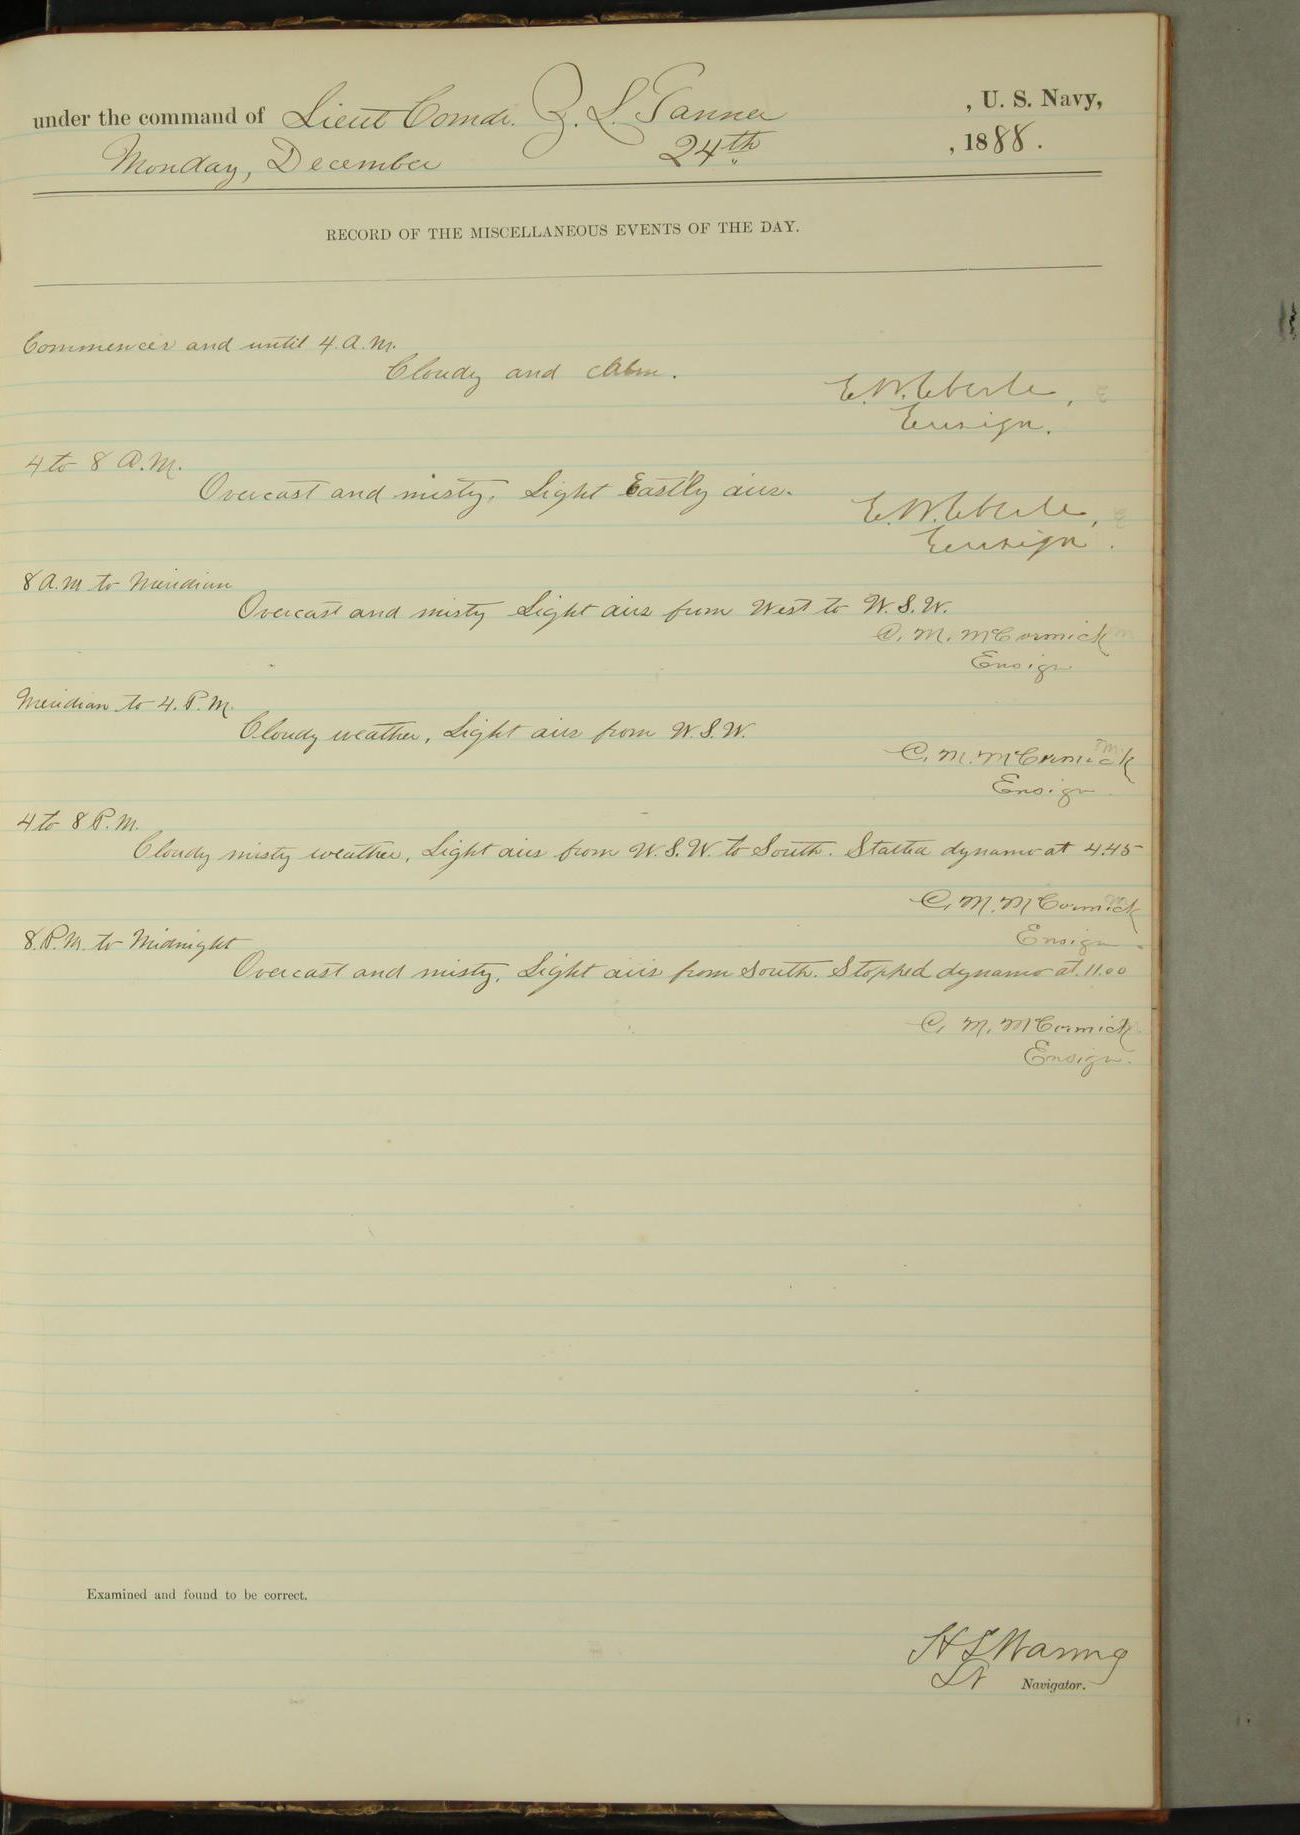 under the command of Lieut Comdr. Z. L. Tanner , U. S. Navy,
Monday, December 24th , 1888.
RECORD OF THE MISCELLANEOUS EVENTS OF THE DAY.
Commences and until 4 A.M.
Cloudy and calm.
E. W. Eberle,
Ensign.
4 to 8 A.M.
Overcast and misty. Light East'ly airs.
E. W. Eberle,
Ensign.
8 A.M. to Meridian
Overcast and misty Light airs from West to W.S.W.
C. M. McCormick
Ensign
Meridian to 4. P.M.
Cloudy weather, Light airs from W.S.W.
C. M. McCormick
Ensign
4 to 8 P.M.
Cloudy misty weather, Light airs from W.S.W. to South. Started dynamo at 4.45
C. M. McCormick
Ensign
8. P.M. to Midnight
Overcast and misty, Light airs from South. Stopped dynamo at 11.00
C. M. McCormick
Ensign.
Examined and found to be correct.
H S Waring
Lt Navigator.